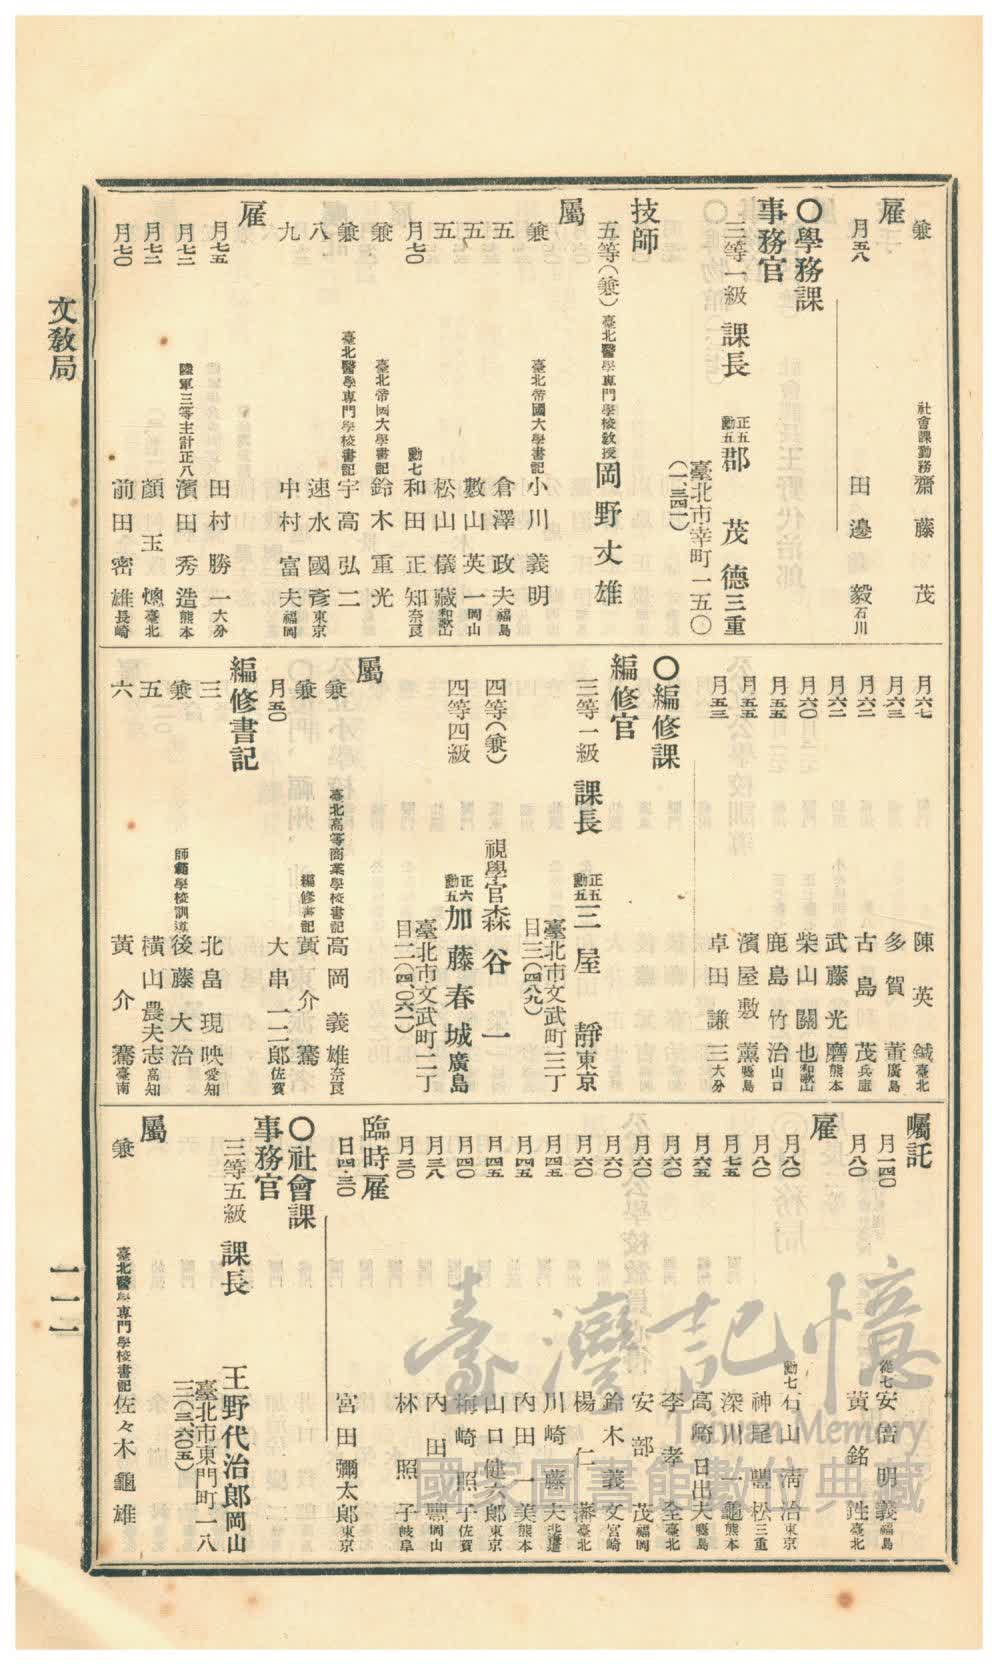 兼 社會課勤務 齋藤茂
雇
月五八 田邊毅 石川
〇學務課
事務官
三等一級 課長 正五勳五 郡茂德 三重
臺北市幸町一五〇
(一、三四一)
技師
五等(兼) 臺北醫學專門學校敎授 岡野丈雄
屬
兼 臺北帝國大學書記 小川義明
五 倉澤政夫 福島
五 數山英一 岡山
五 松山儀藏 和歌山
月七〇 勳七 和田正知 奈良
兼 臺北帝國大學書記 鈴木重光
兼 臺北醫學專門學校書記 宇高弘二
八 速水國彥 東京
九 中村富夫 福岡
雇
月七五 田村勝一 大分
月七二 陸軍三等主計正八 濱田秀造 熊本
月七二 顏玉燠 臺北
月七〇 前田密雄 長崎
月六七 陳英鉞 臺北
月六三 多賀董 廣島
月六二 古島茂 兵庫
月六二 武藤光磨 熊本
月六〇 柴山關也 和歌山
月五五 鹿島竹治 山口
月五五 濱屋敷薰
月五三 卓田謙三 大分
〇編修課
編修官
三等一級 課長 正五勳五 三屋靜 東京
臺北市文武町三丁
目三(四八九)
四等(兼) 視學官 森谷一
四等四級 正六勳五 加藤春城 廣島
臺北市文武町二丁
目二(四、〇六一)
屬
兼 臺北高等商業學校書記 高岡義雄 奈良
兼 編修書記 黃介騫
月五〇 大串一二郎 佐賀
編修書記
三 北畠現映 愛知
兼 師範學校訓導 後藤大治
五 橫山農夫志 高知
六 黃介騫 臺南
囑託
月一四〇 從七 安倍明義 福島
月八〇 黃銘鉎 臺北
雇
月八〇 勳七 石山淸治 東京
月八〇 神尾豐松 三重
月七五 深川一龜 熊本
月六五 高崎日出夫
月六〇 李孝全 臺北
月六〇 安部茂 福岡
月六〇 鈴木義文 宮崎
月六〇 楊仁 臺北
月四五 川崎藤夫 北海道
月四五 內田一美 熊本
月四五 山口健六郎 東京
月四〇 崎照子 佐賀
月三八 內田豐 岡山
月三〇 林照子 岐阜
臨時雇
日四・三〇 宮田彌太郎 東京
〇社會課
事務官
三等五級 課長 王野代治郎 岡山
臺北市東門町一八
三(三、六〇五)
屬
兼 臺北醫學專門學校書記 佐々木龜雄
文敎局
一一一
臺灣記憶
Taiwan Memory
國家圖書館數位典藏